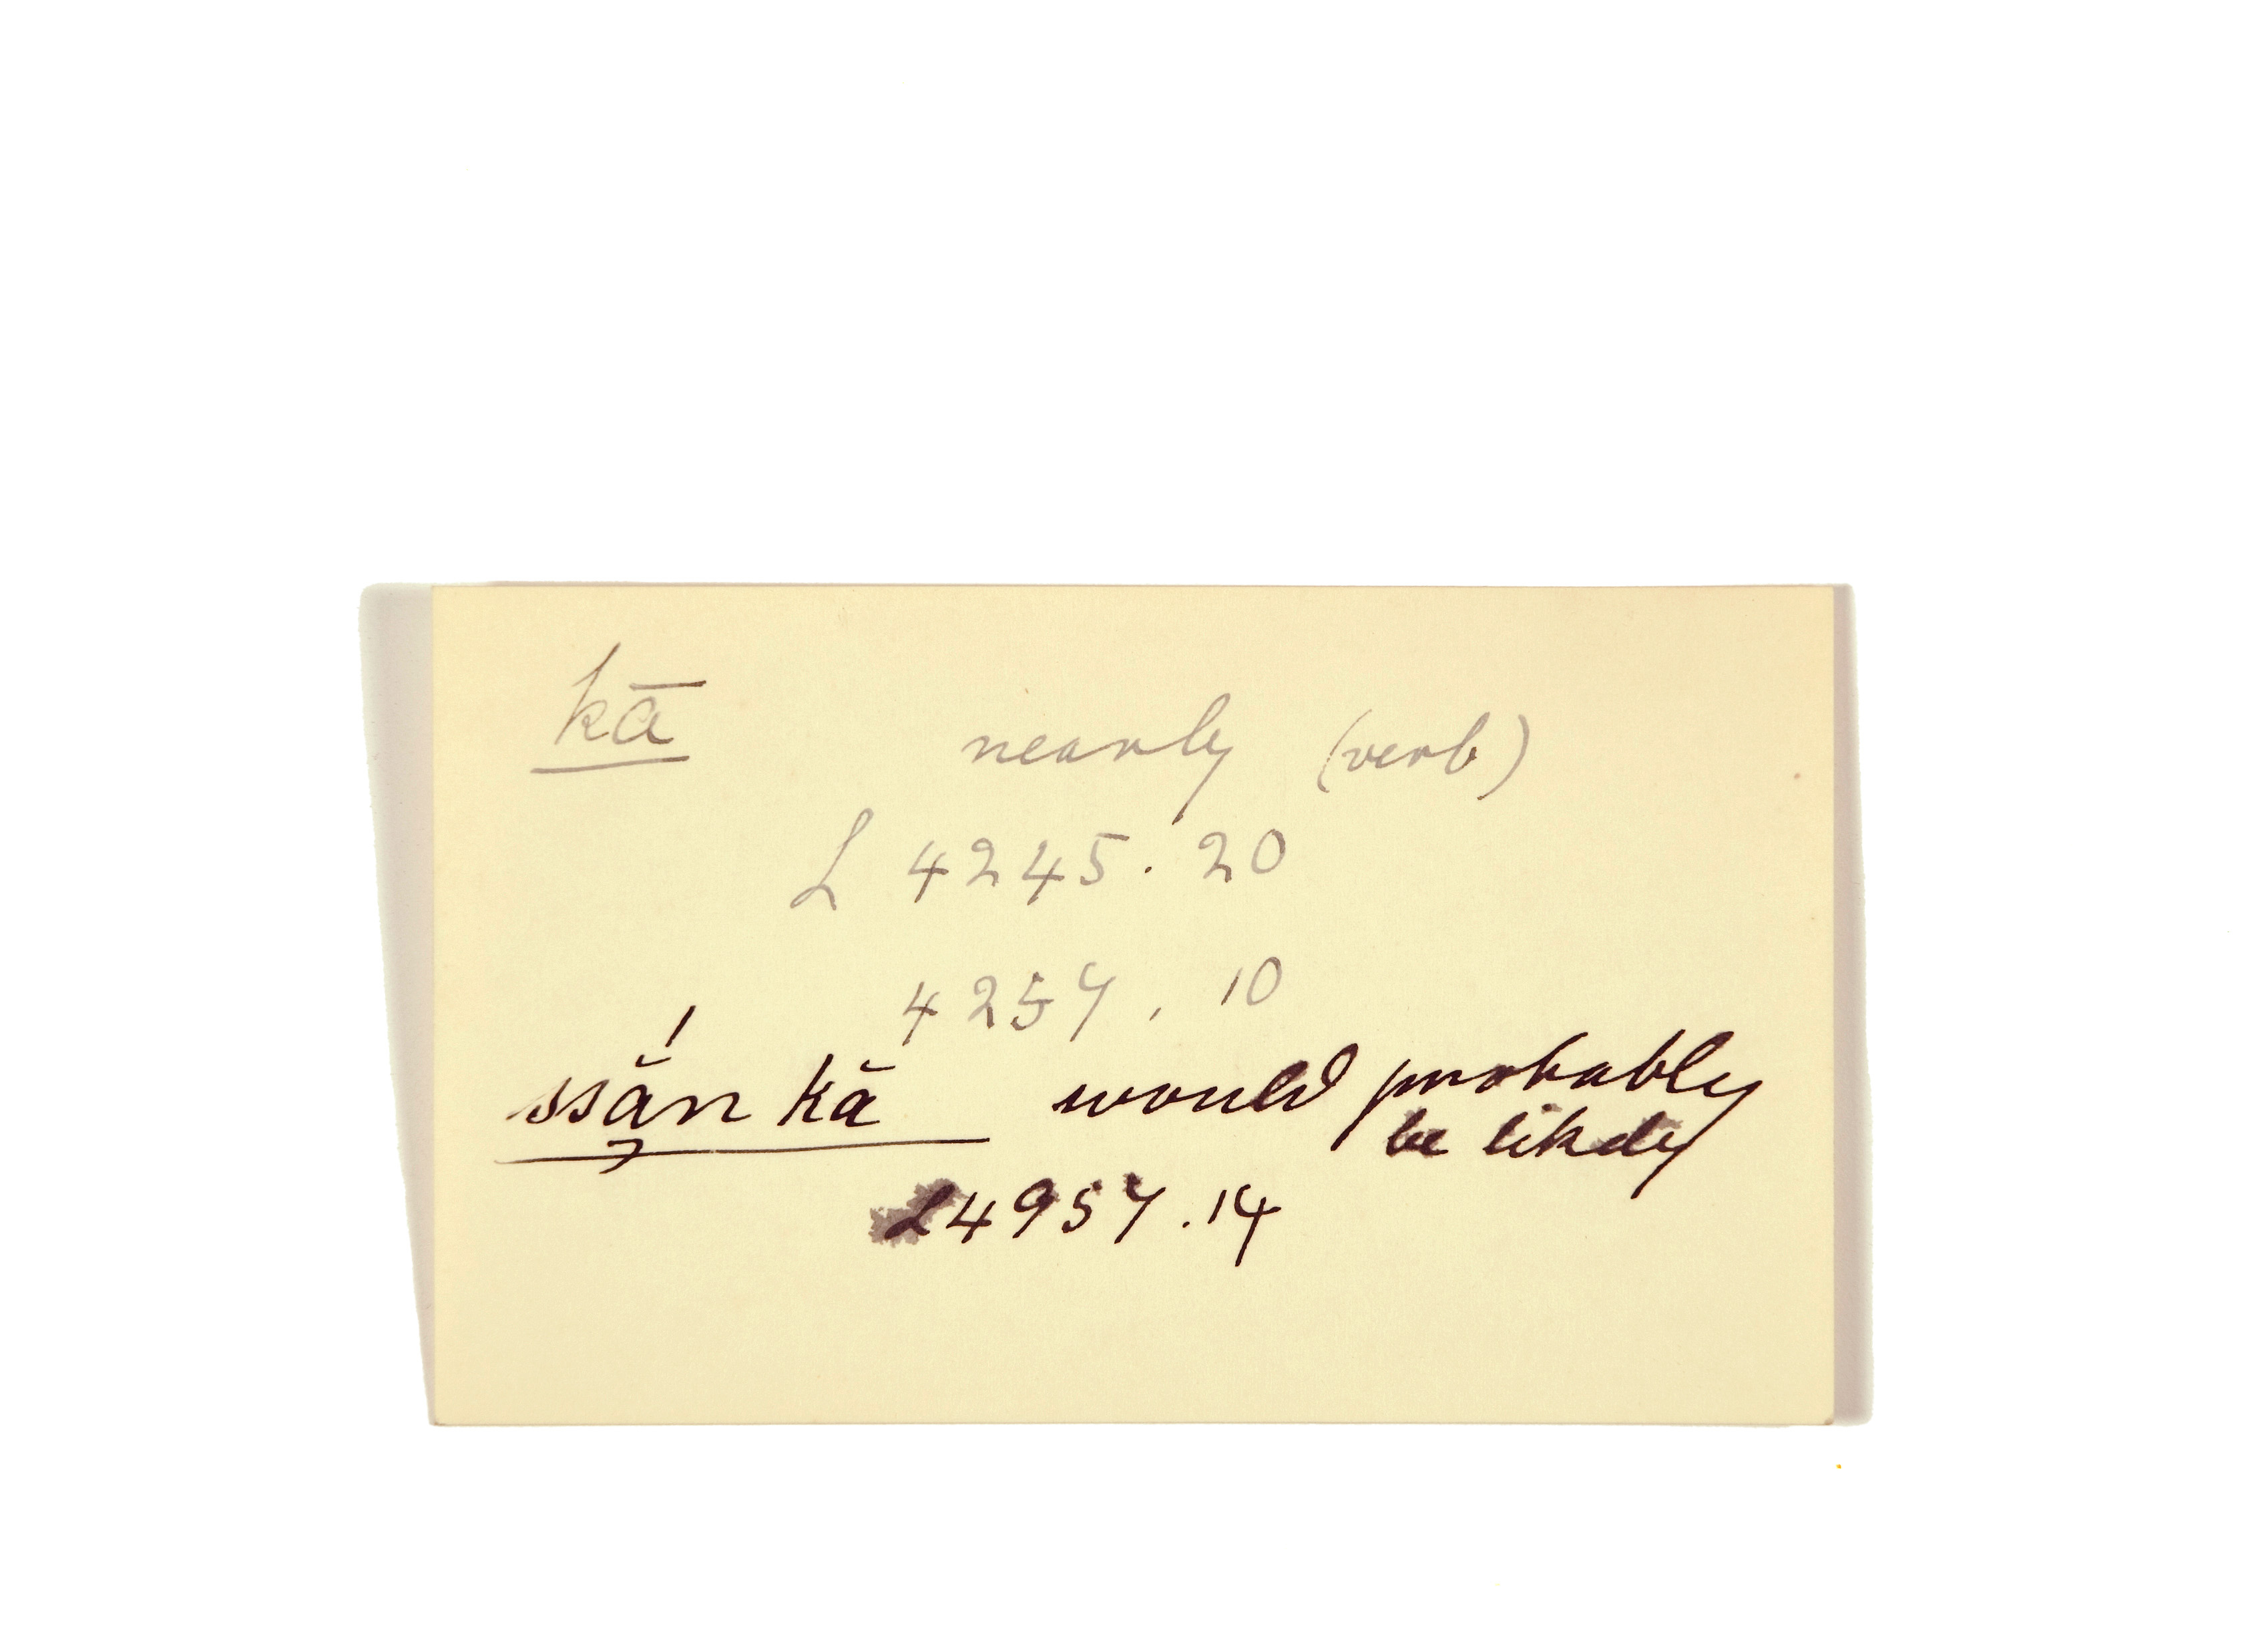 kā nearly (verb)
L 4245. 20
4257. 10
ssą̆́n kă would probably
be likely
L4957.14